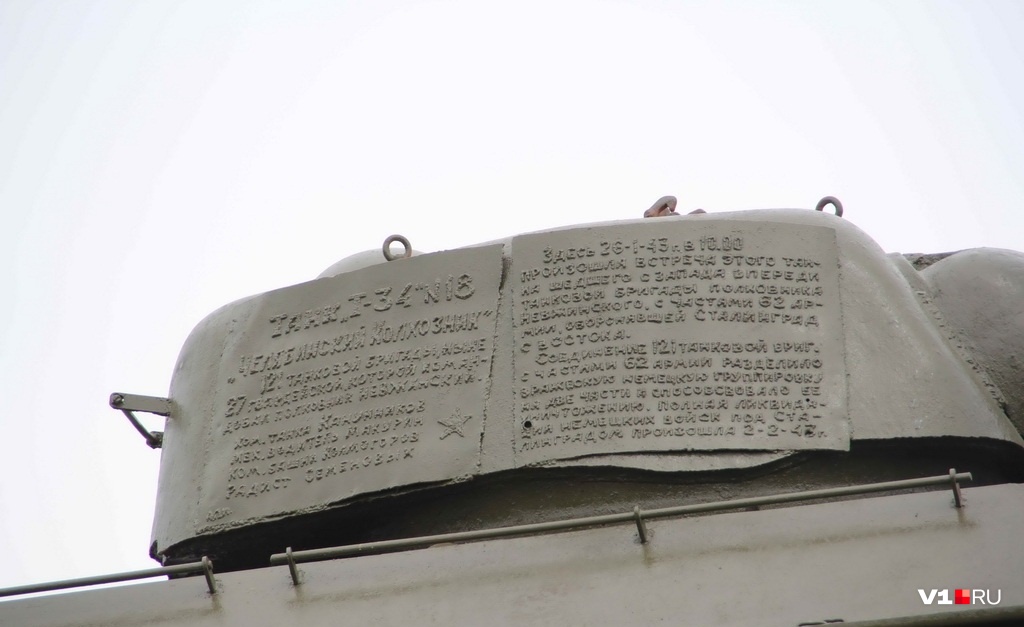 ТАНК Т-34 №18
"ЧЕЛЯБИНСКИЙ КОЛХОЗНИК"
121 ТАНКОВОЙ БРИГАДЫ, НЫНЕ
27 ГВАРДЕЙСКОЙ, КОТОРОЙ КОМАН-
ДОВАЛ ПОЛКОВНИК НЕВЖИНСКИЙ.
КОМ. ТАНКА КАНУННИКОВ
МЕХ. ВОДИТЕЛЬ МАКУРИН
КОМ. БАШНИ КОЛМОГОРОВ
РАДИСТ СЕМЕНОВЫХ
ЗДЕСЬ 26-1-43 г. В 10.00
ПРОИЗОШЛА ВСТРЕЧА ЭТОГО ТАН-
КА ШЕДШЕГО С ЗАПАДА ВПЕРЕДИ
ТАНКОВОЙ БРИГАДЫ ПОЛКОВНИКА
НЕВЖИНСКОГО, С ЧАСТЯМИ 62 АР-
МИИ, ОБОРОНЯВШЕЙ СТАЛИНГРАД
С ВОСТОКА.
СОЕДИНЕНИЕ 121 ТАНКОВОЙ БРИГ.
С ЧАСТЯМИ 62 АРМИИ РАЗДЕЛИЛО
ВРАЖЕСКУЮ НЕМЕЦКУЮ ГРУППИРОВКУ
НА ДВЕ ЧАСТИ И СПОСОБСТВОВАЛО ЕЕ
УНИЧТОЖЕНИЮ. ПОЛНАЯ ЛИКВИДА-
ЦИЯ НЕМЕЦКИХ ВОЙСК ПОД СТА-
ЛИНГРАДОМ ПРОИЗОШЛА 2-2-43 г.
V1.RU